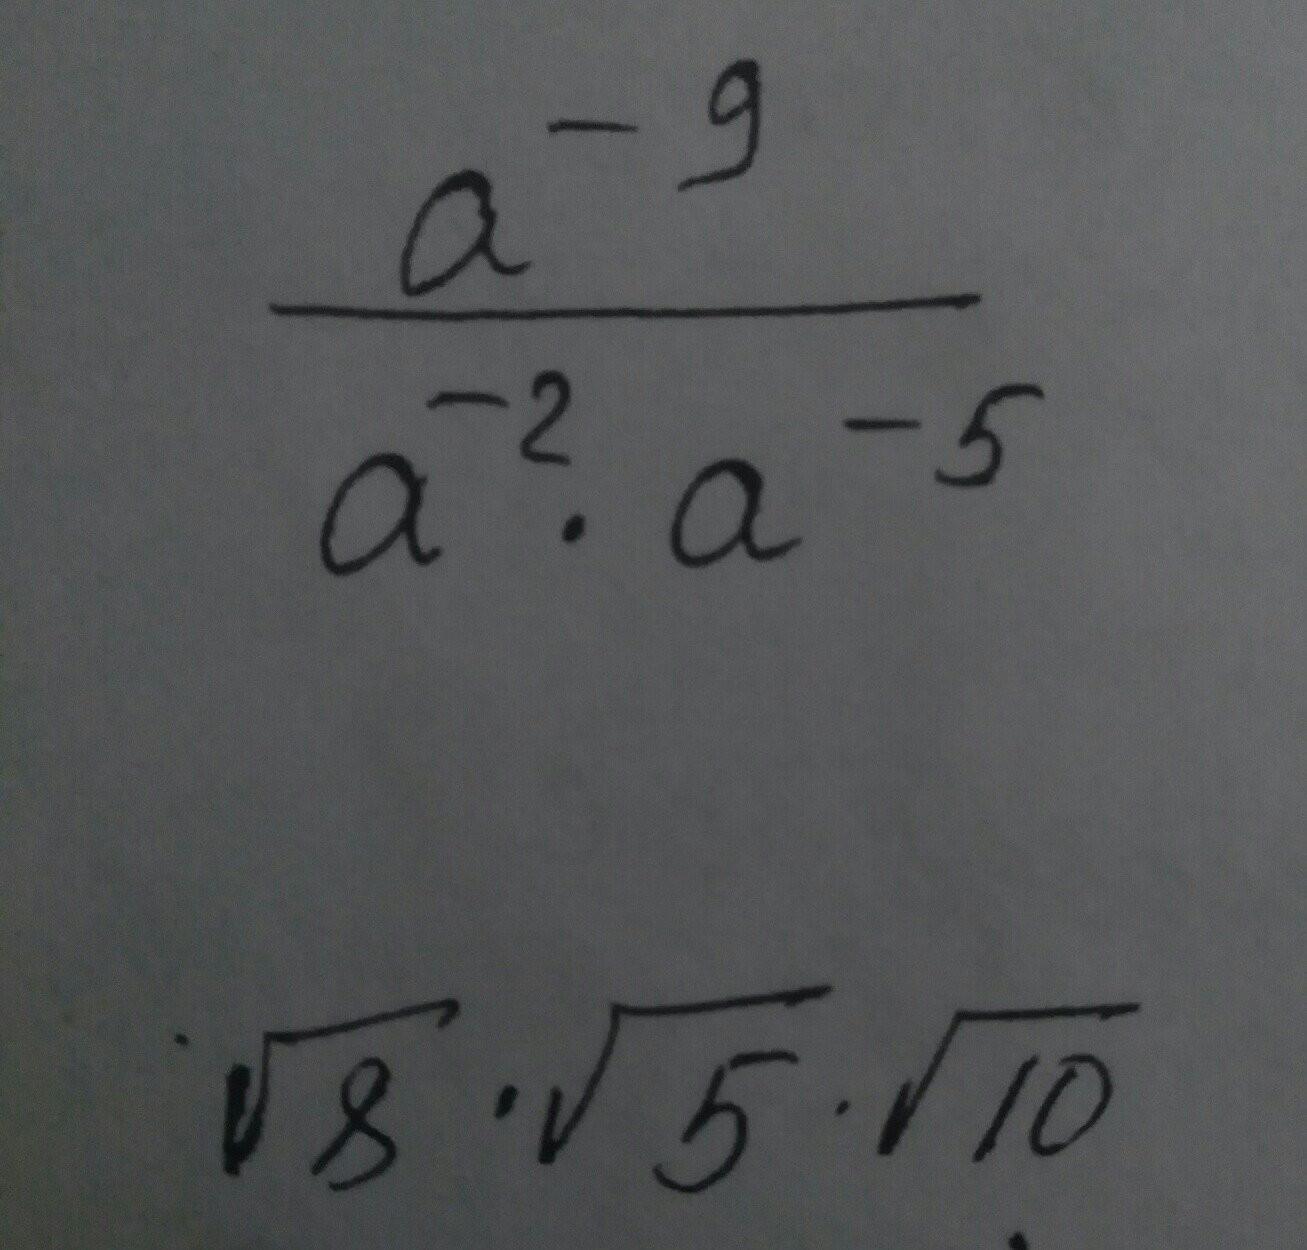 a⁻⁹
a⁻² · a⁻⁵
√8 · √5 · √10